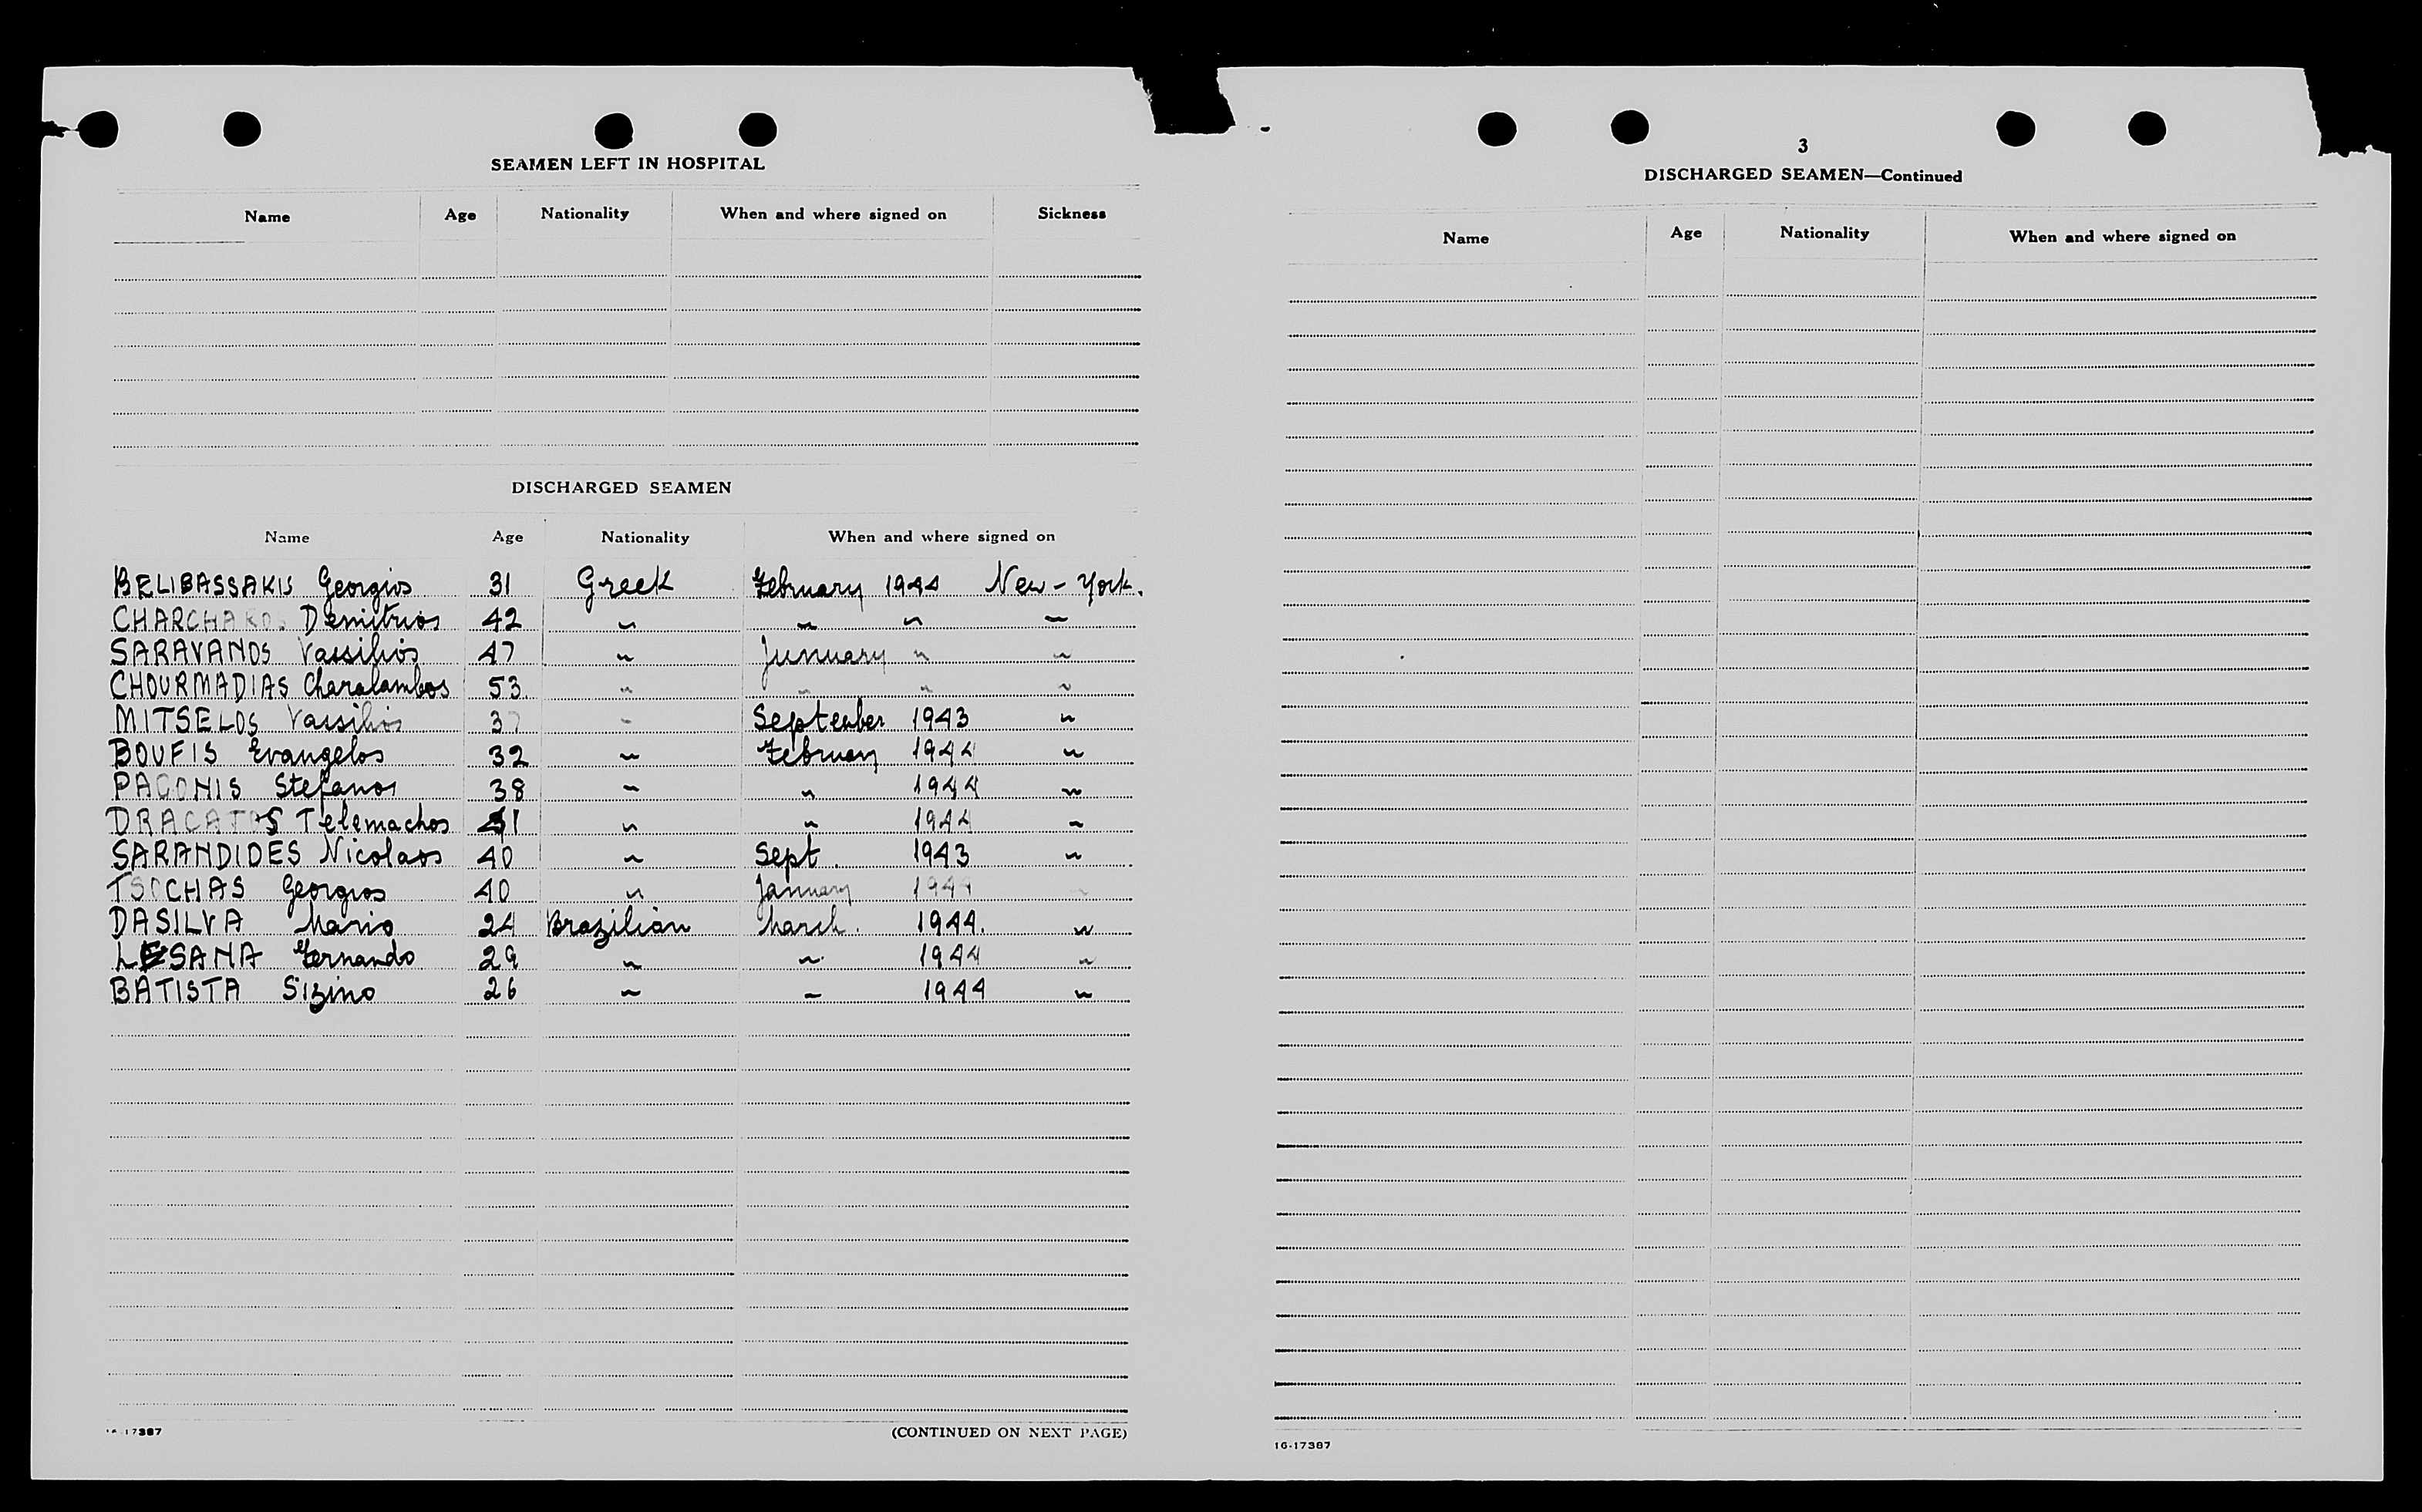 SEAMEN LEFT IN HOSPITAL
Name Age Nationality When and where signed on Sickness
DISCHARGED SEAMEN
Name Age Nationality When and where signed on
BELIBASSAKIS Georgios 31 Greek February 1944 New-York.
CHARCHAROS Demitrios 42 " " " "
SARAVANOS Vassilios 47 " Junuary " "
CHOURMADIAS Charalambos 53. " " " "
MITSELOS Vassilios 37 " September 1943 "
BOUFIS Evangelos 32 " February 1944 "
PAGONIS Stefanos 38 " " 1944 "
DRACATOS Telemachos 41 " " 1944 "
SARANDIDES Nicolaos 40 " Sept. 1943 "
TSOCHAS Georgios 40 " January 1944 "
DASILVA Mario 24 Brazilian March. 1944. "
LESANA Fernando 29 " " 1944 "
BATISTA Sizino 26 " " 1944 "
16-17387
(CONTINUED ON NEXT PAGE)
3
DISCHARGED SEAMEN—Continued
Name Age Nationality When and where signed on
16-17387